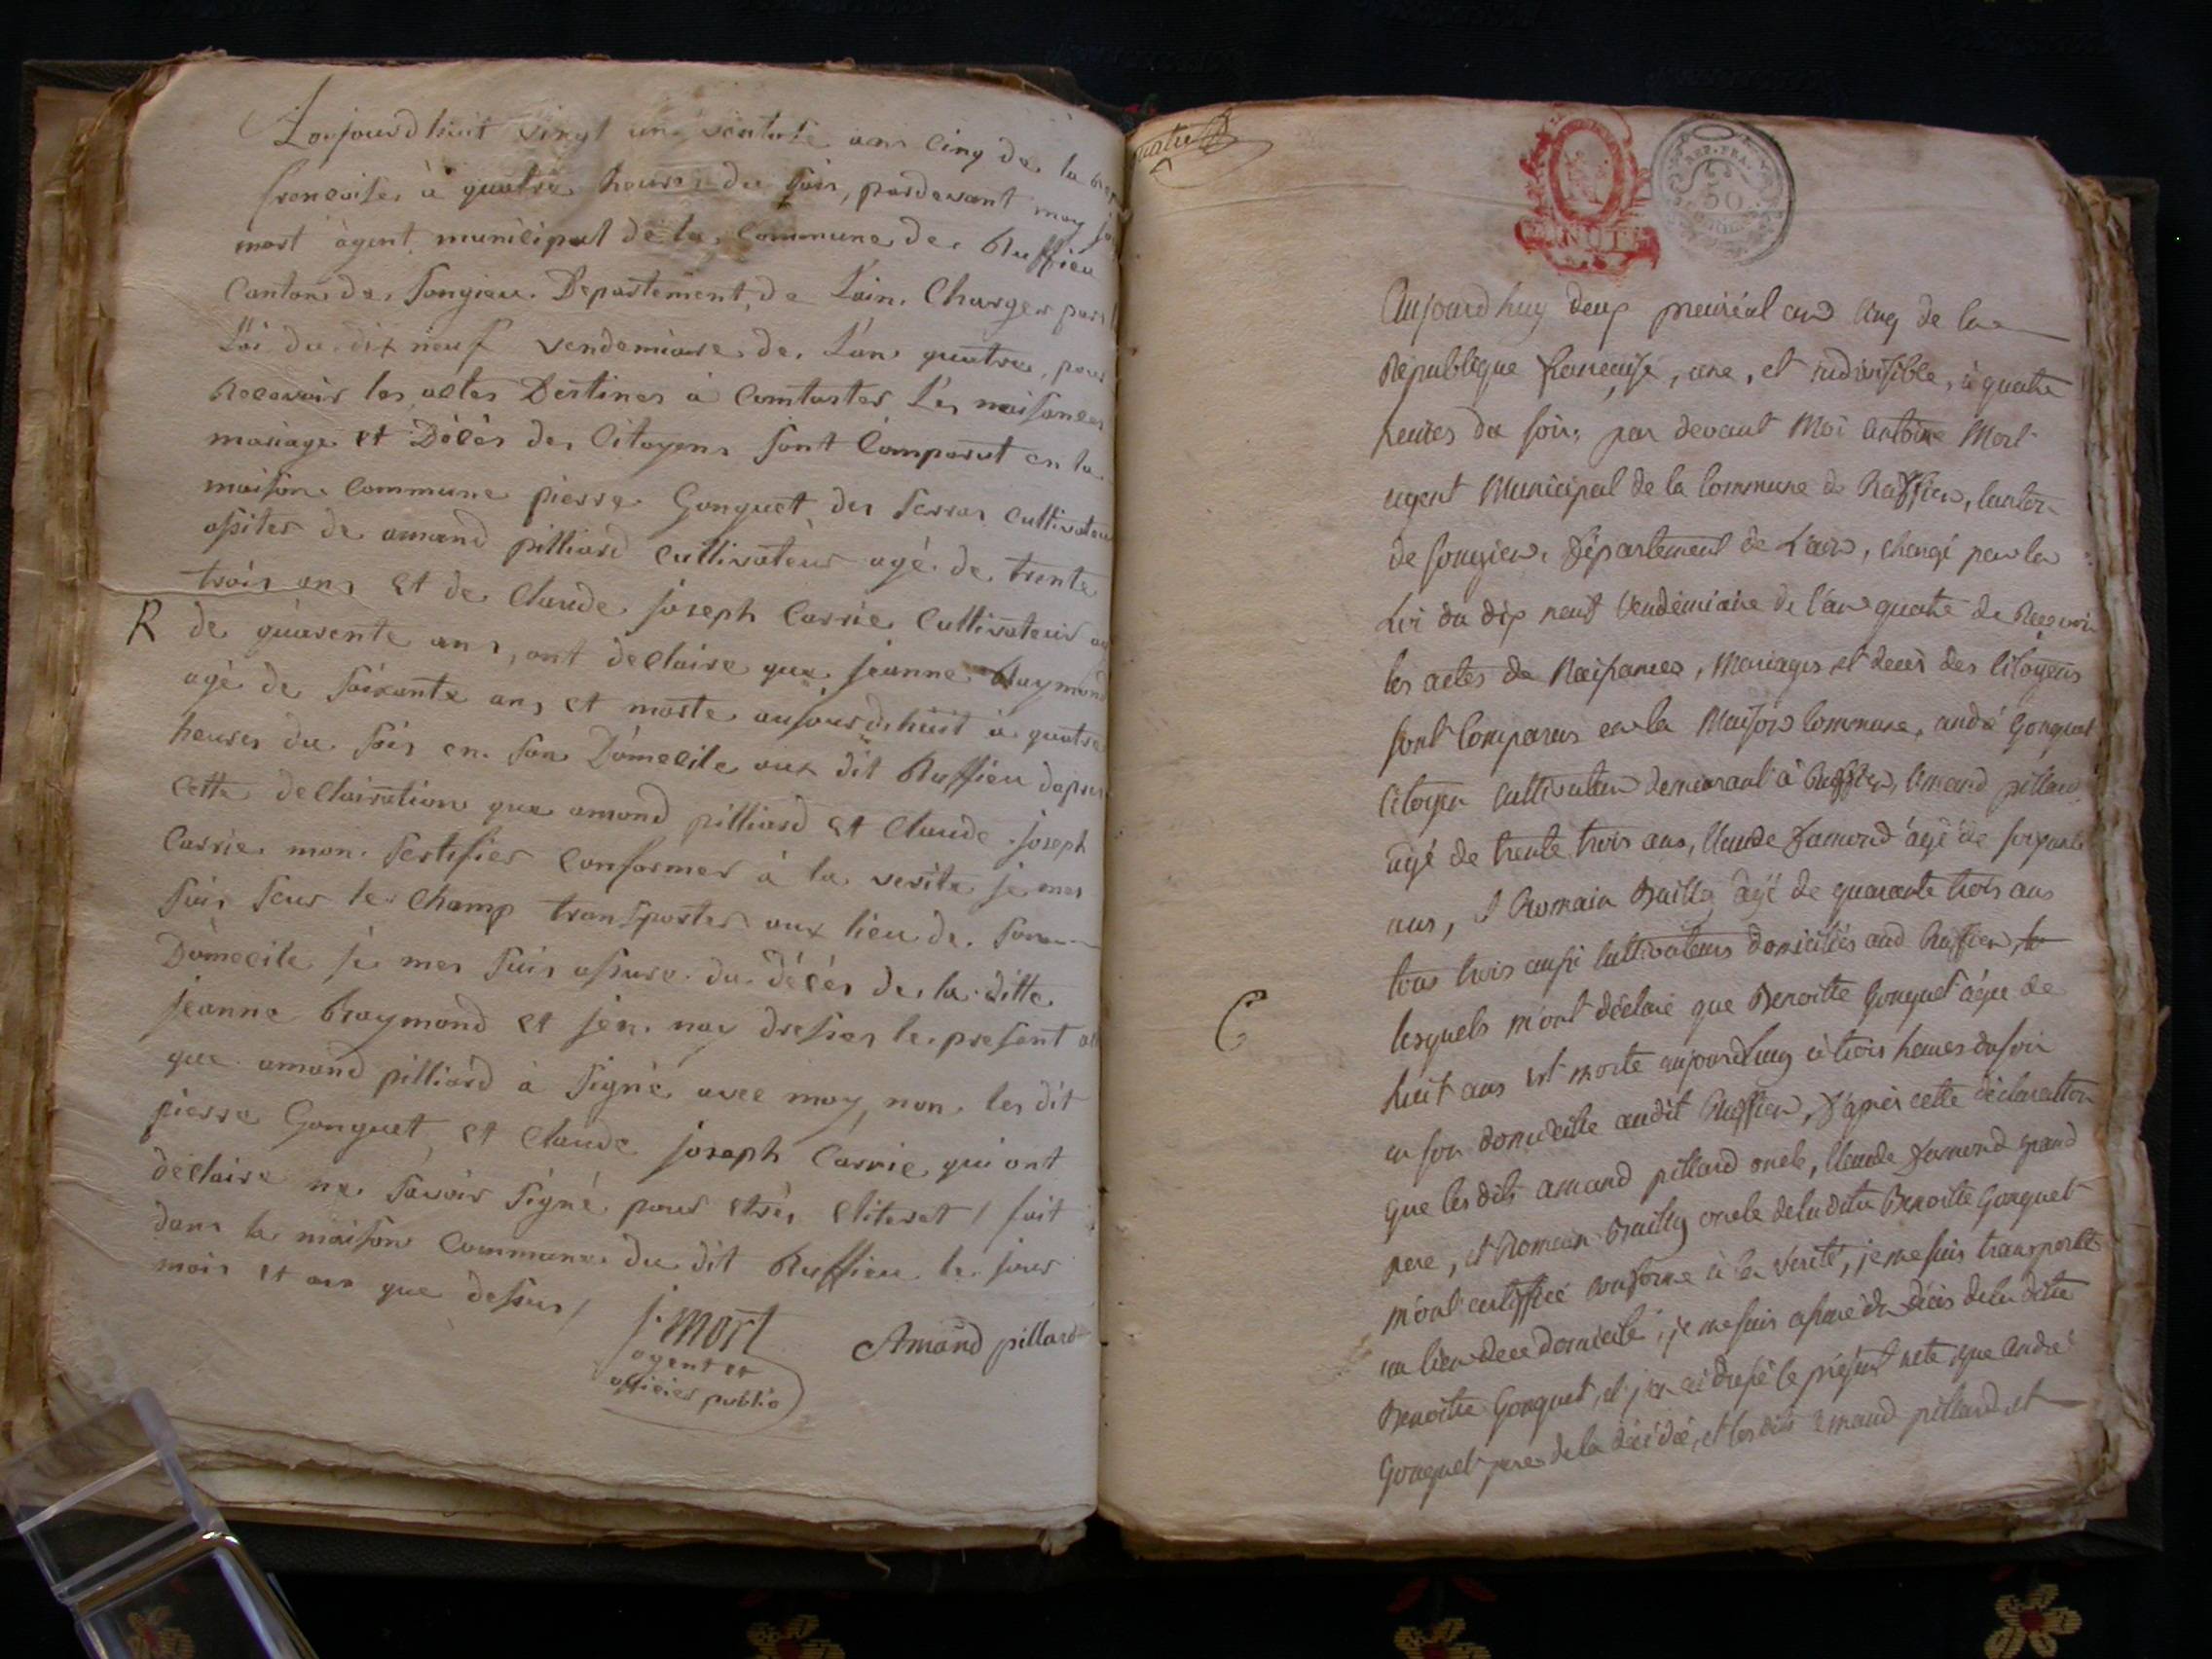 Aujourdhuit vingt un ventose an cinq de la
francaise à quatre heures du soir, pardevant moy
mort àgent municipal de la Commune de Ruffieu
Canton de Songieu Departement de L'ain Charger par
Loi du dix neuf vendemiaire de L'an quatre, pour
Recevoir les actes Destines à Constater Les naisances
mariage et Dècès des Citoyens Sont Comparut en la
maison Commune pierre Gonguet des Serras Cultivateur
asistes de amand pilliard cultivateur agé de trente
trois ans et de Claude joseph Carrie Cultivateur
R de quarente ans, ont declaire que jeanne Raymond
agé de Soixante ans et morte aujourdhuit à quatre
heures du Soir en Son Domecile aux dit Ruffieu dapres
Cette declairation que amand pilliard et Claude joseph
Carrie mon Sertifier Conformer à la verite je mes
Suis Seur le Champ transporter aux lieu de Son
Domecile je mes Suis assure du dècès de la ditte
jeanne Raymond et jen nay dresser le present
que amand pilliard à Signé avec moy, non les dit
pierre Gonguet et Claude joseph Carrie qui ont
declaire ne Savoir Signé pour etres eliterat / fait
dans la maison Commune du dit Ruffieu le jour
mois et an que dessus /
j. mort
agent et
officier public
Amand pillard
quatre
MINUTE
REP. FRA.
50
Aujourdhuy deux preirial an cinq de la
République francaise, une, et indivisible, à quatre
heures du soir, par devant Moi antoine Mort
agent Municipal de la Commune de Ruffieu, Canton
de songieu, Département de L'ain, chargé par la
Loi du dix neuf Vendemiaire de l'an quatre de Recevoir
les actes de Naissances, Mariages et deces des Citoyens
sont Comparus en la Maison Commune, andré Gonguet
Citoyen Cultivateur demeurant à Ruffieu, amand pillard
agé de trente trois ans, Claude Jamond agé de soixante
ans, & Romain Bailly agé de quarante trois ans
tous trois aussi Cultivateurs domiciliés aud Ruffieu,
C lesquels m'ont déclaré que Benoitte Gonguet agée de
huit ans est morte aujourdhuy à trois heures du soir
en son domicille audit Ruffieu, D'après cette déclaration
que lesdits amand pillard oncle, Claude Jamond grand
pere, et Romain Bailly oncle de la ditte Benoitte Gonguet
m'ont certiffié Conforme à la verité, je me suis transporté
au lieu de ce domicile, je me suis assuré du décès de la ditte
Benoitte Gonguet, et j'en ai dressé le présent acte que André
Gonguet pere de la décédée, et les dits amand pillard et